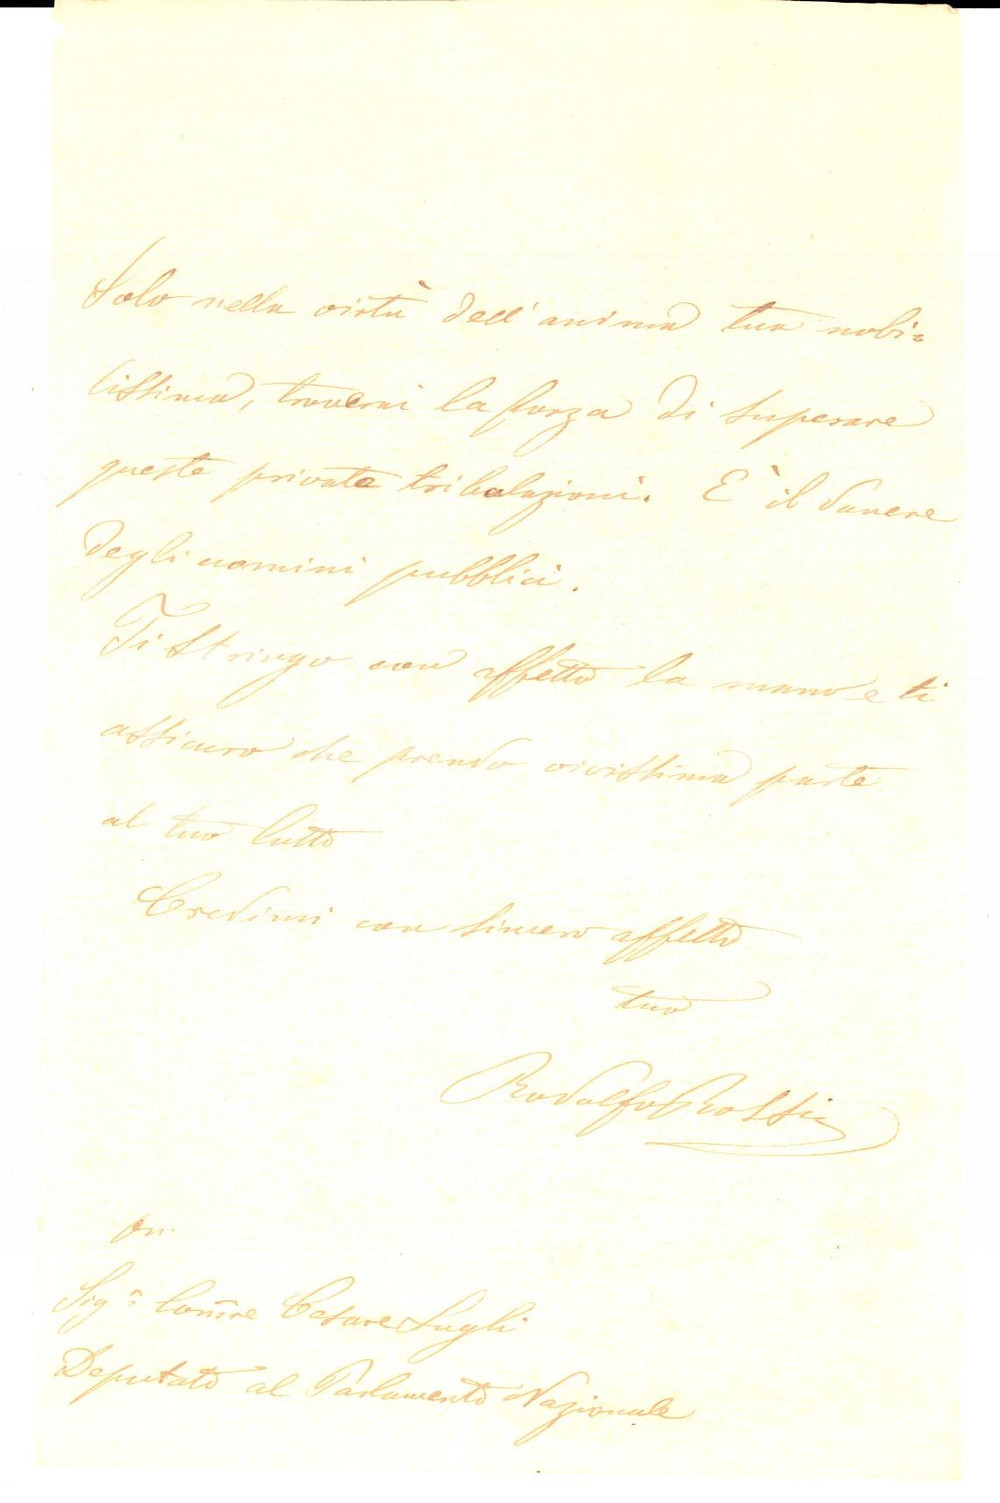 Solo nella virtù dell'anima tua nobi=
lissima, troverai la forza di superare
queste private tribolazioni. E' il dovere
degli uomini pubblici.
Ti stringo con affetto la mano e ti
assicuro che prendo vivissima parte
al tuo lutto
Credimi con sincero affetto
tuo
Rodolfo Rossi
On.
Sigr Comre Cesare Lugli
Deputato al Parlamento Nazionale